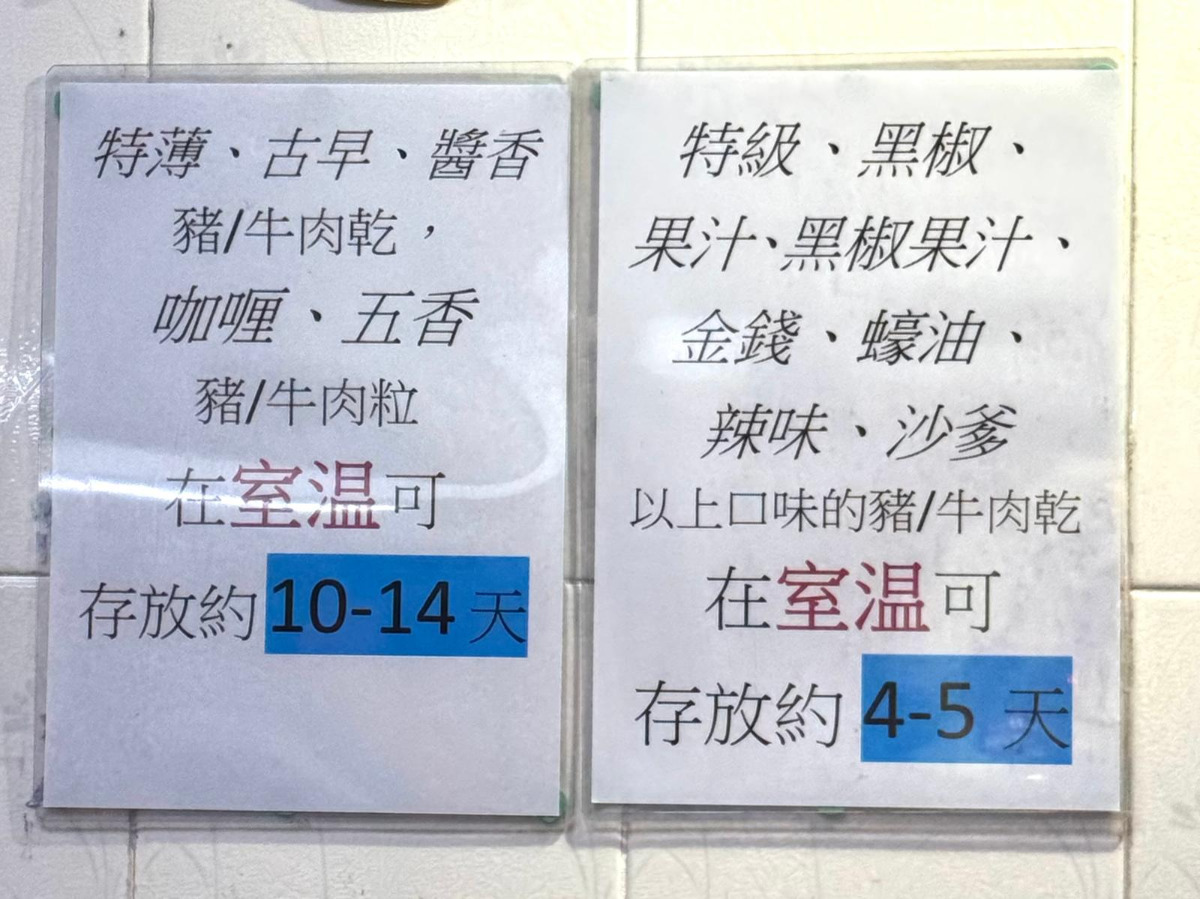 特薄、古早、醬香
豬/牛肉乾，
咖喱、五香
豬/牛肉粒
在室温可
存放約10-14天
特級、黑椒、
果汁、黑椒果汁、
金錢、蠔油、
辣味、沙爹
以上口味的豬/牛肉乾
在室温可
存放約 4-5 天